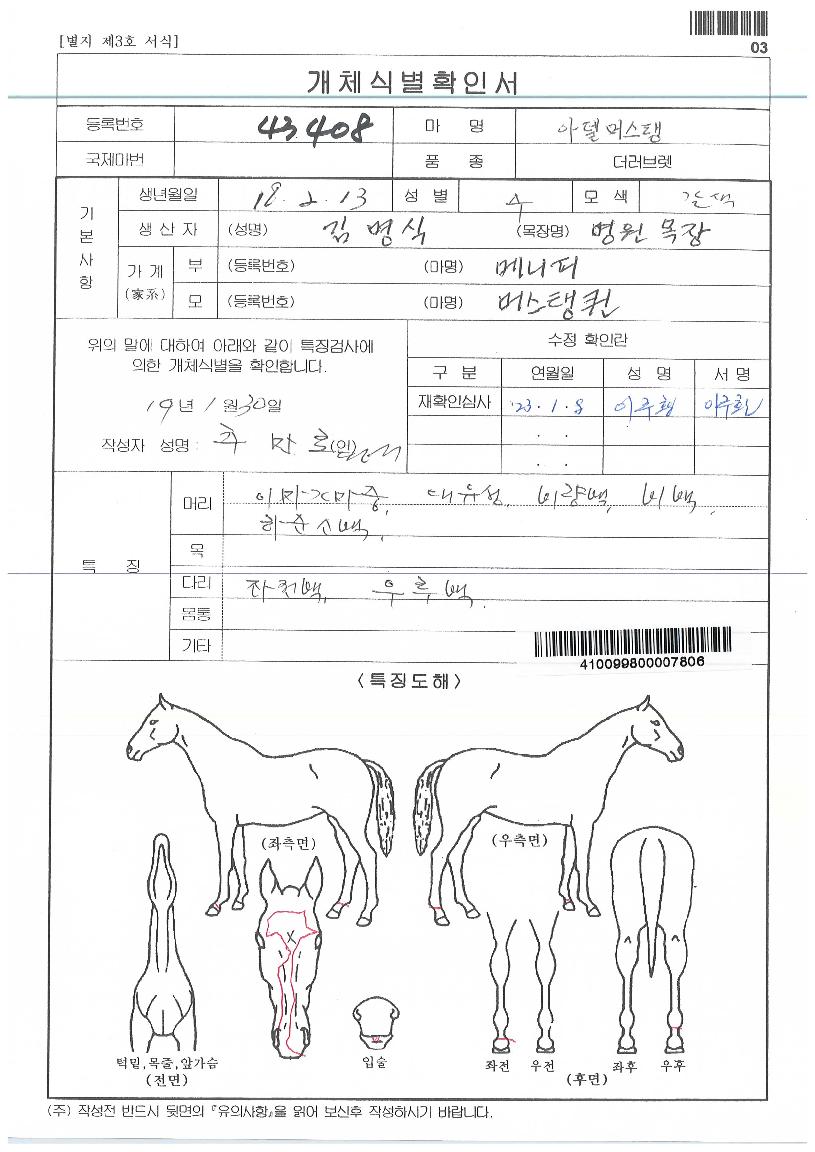 [별지 제3호 서식]
03
개체식별확인서
등록번호 43408 마 명 아델머스탱
국제마번 품 종 더러브렛
기본사항
생년월일 18. 2. 13 성 별 수 모 색 갈색
생 산 자 (성명) 김명식 (목장명) 병원목장
가 계 (家系) 부 (등록번호) (마명) 메니피
모 (등록번호) (마명) 머스탱퀸
위의 말에 대하여 아래와 같이 특징검사에
의한 개체식별을 확인합니다.
19년 1월 30일
작성자 성명 : (인)
수정 확인란
구 분 연월일 성 명 서 명
재확인심사 '23. 1. 8
. .
. .
특 징
머리 대유성, 비량백, 비백,
하순소백,
목
다리
몸통
기타
410099800007806
<특징도해>
(좌측면)
(우측면)
턱밑,목줄,앞가슴
(전면)
입술
좌전 우전
좌후 우후
(후면)
(주) 작성전 반드시 뒷면의 『유의사항』을 읽어 보신후 작성하시기 바랍니다.